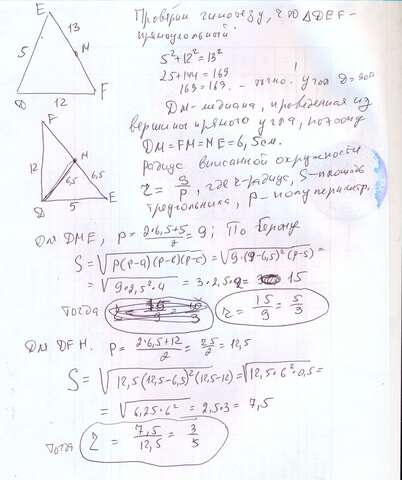 E
13
M
5
D
12
F
F
12
M
6,5
6,5
D
5
E
Проверим гипотезу, что ΔDEF -
прямоугольный
5²+12²=13²
25+144=169
169=169. - точно. Угол D=90°!
DM-медиана, проведенная из
вершины прямого угла, потому
DM=FM=ME=6,5см.
Радиус вписанной окружности
r=S/P, где r-радиус, S-площадь
треугольника, P-полупериметр.
Для DME, P=(2·6,5+5)/2=9; По Герону
S=√(P(P-a)(P-b)(P-c))=√(9·(9-6,5)²(9-5))=
=√(9·2,5²·4)=3·2,5·2=15
тогда r=15/9=5/3
Для DFM. P=(2·6,5+12)/2=25/2=12,5
S=√(12,5(12,5-6,5)²(12,5-12))=√(12,5·6²·0,5)=
=√(6,25·6²)=2,5·3=7,5
тогда r=7,5/12,5=3/5